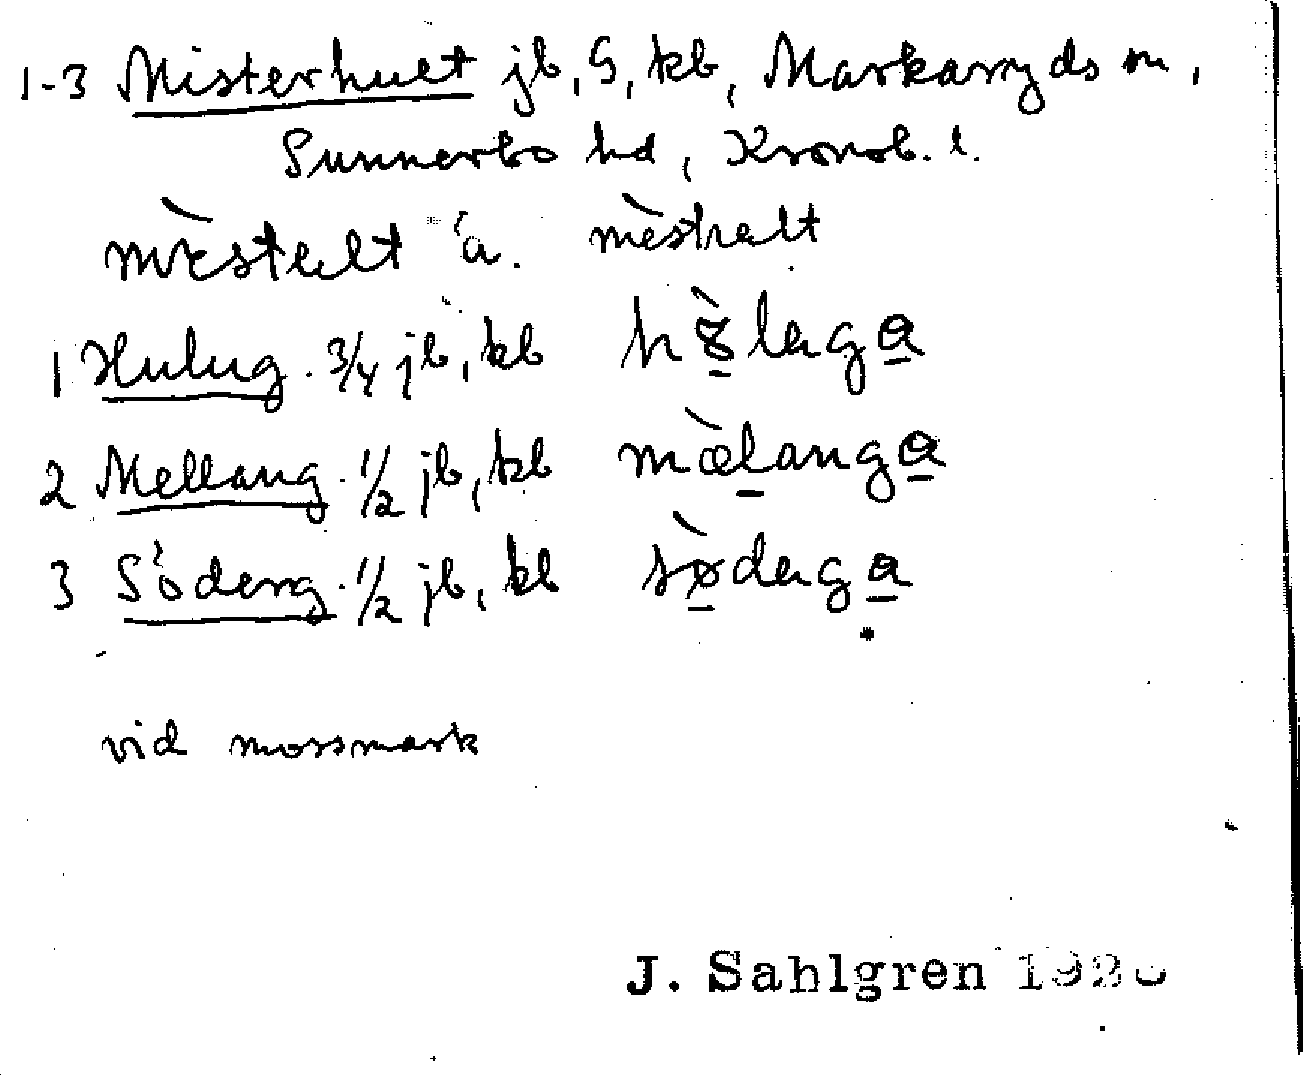 1-3 Misterhuet jb, S, kb, Markaryds sn,
Sunnerbo hd, Kronob. l.
mèstelt a. mèstralt
1 Hulug. 3/4 jb, kb hòlaga
2 Mellang. 1/2 jb, kb mælanga
3 Söderg. 1/2 jb, kb sødaga
vid mossmark
J. Sahlgren